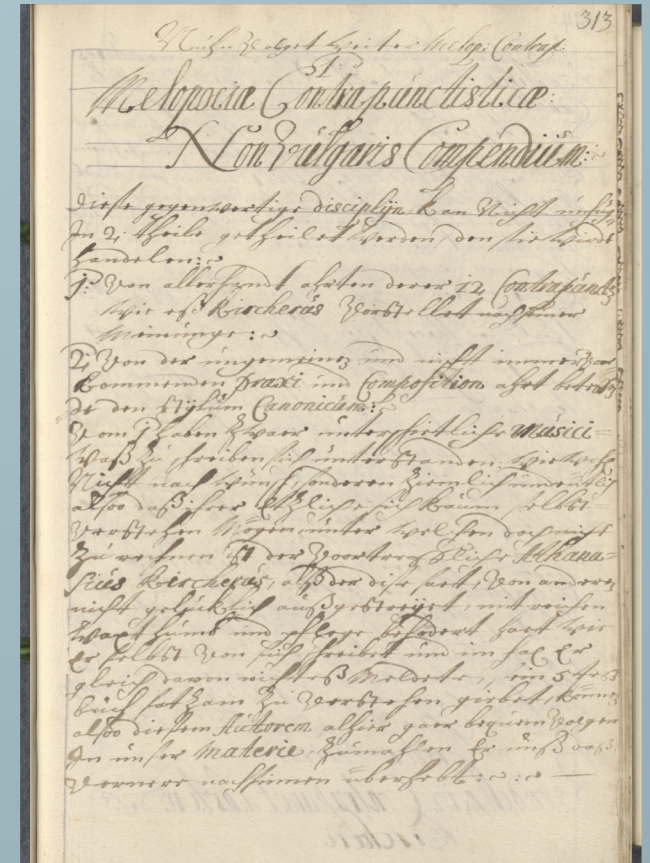 313
Nuhn Volget weiter Melop: Contrap:
Melopoeiæ Contrapunctisticæ
Non Vulgaris Compendium:
Diese gegenwertige disciplijn kan Nicht unfüg-
In 2; theile getheilet werden, den sie wirdt
handelen:
1; Von allerhandt ahrten derer 12, Contrapunct
wie eß Kircherus Vorstellet nach seiner
Meinunge:
2; Von der ungemeinen und nicht immer vor
kommenden praxi und Composition ahrt
de den Stylum Canonicum:
Vom 1 haben zwaer unterschietliche Musici
waß zu schreiben sich unterstanden: wiewohl
Nicht nach wunsch, sonderen ziemlich undeutlich
alsoo daß ihrer etzliche sich kaum selbst
Verstehen Mögen, unter welchen doch nicht
zu rechnen ist der Voortreffliche Athana-
sius Kircherus, alß der diese art, Von anderen
nicht gelücklich außgestreyet, mit reichen
wachsthumb und pflege befodert hat wie
Er selbst Von sich schreibet und im fal Er
gleich davon nichteß Meldete, sein 5teß
buch satsam zu Verstehen giebet, können
alsoo diessem Autorem alhier gaer bequem Volgen
In unser Materie, zumahlen Er unß daß
Vernere nachsinnen überhebt: